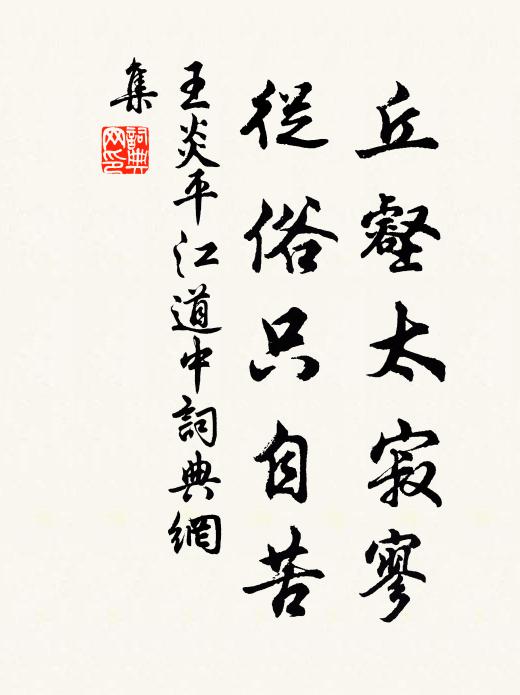 丘壑太寂寥
從俗只自苦
王炎平江道中詞典網
集
詞典網印